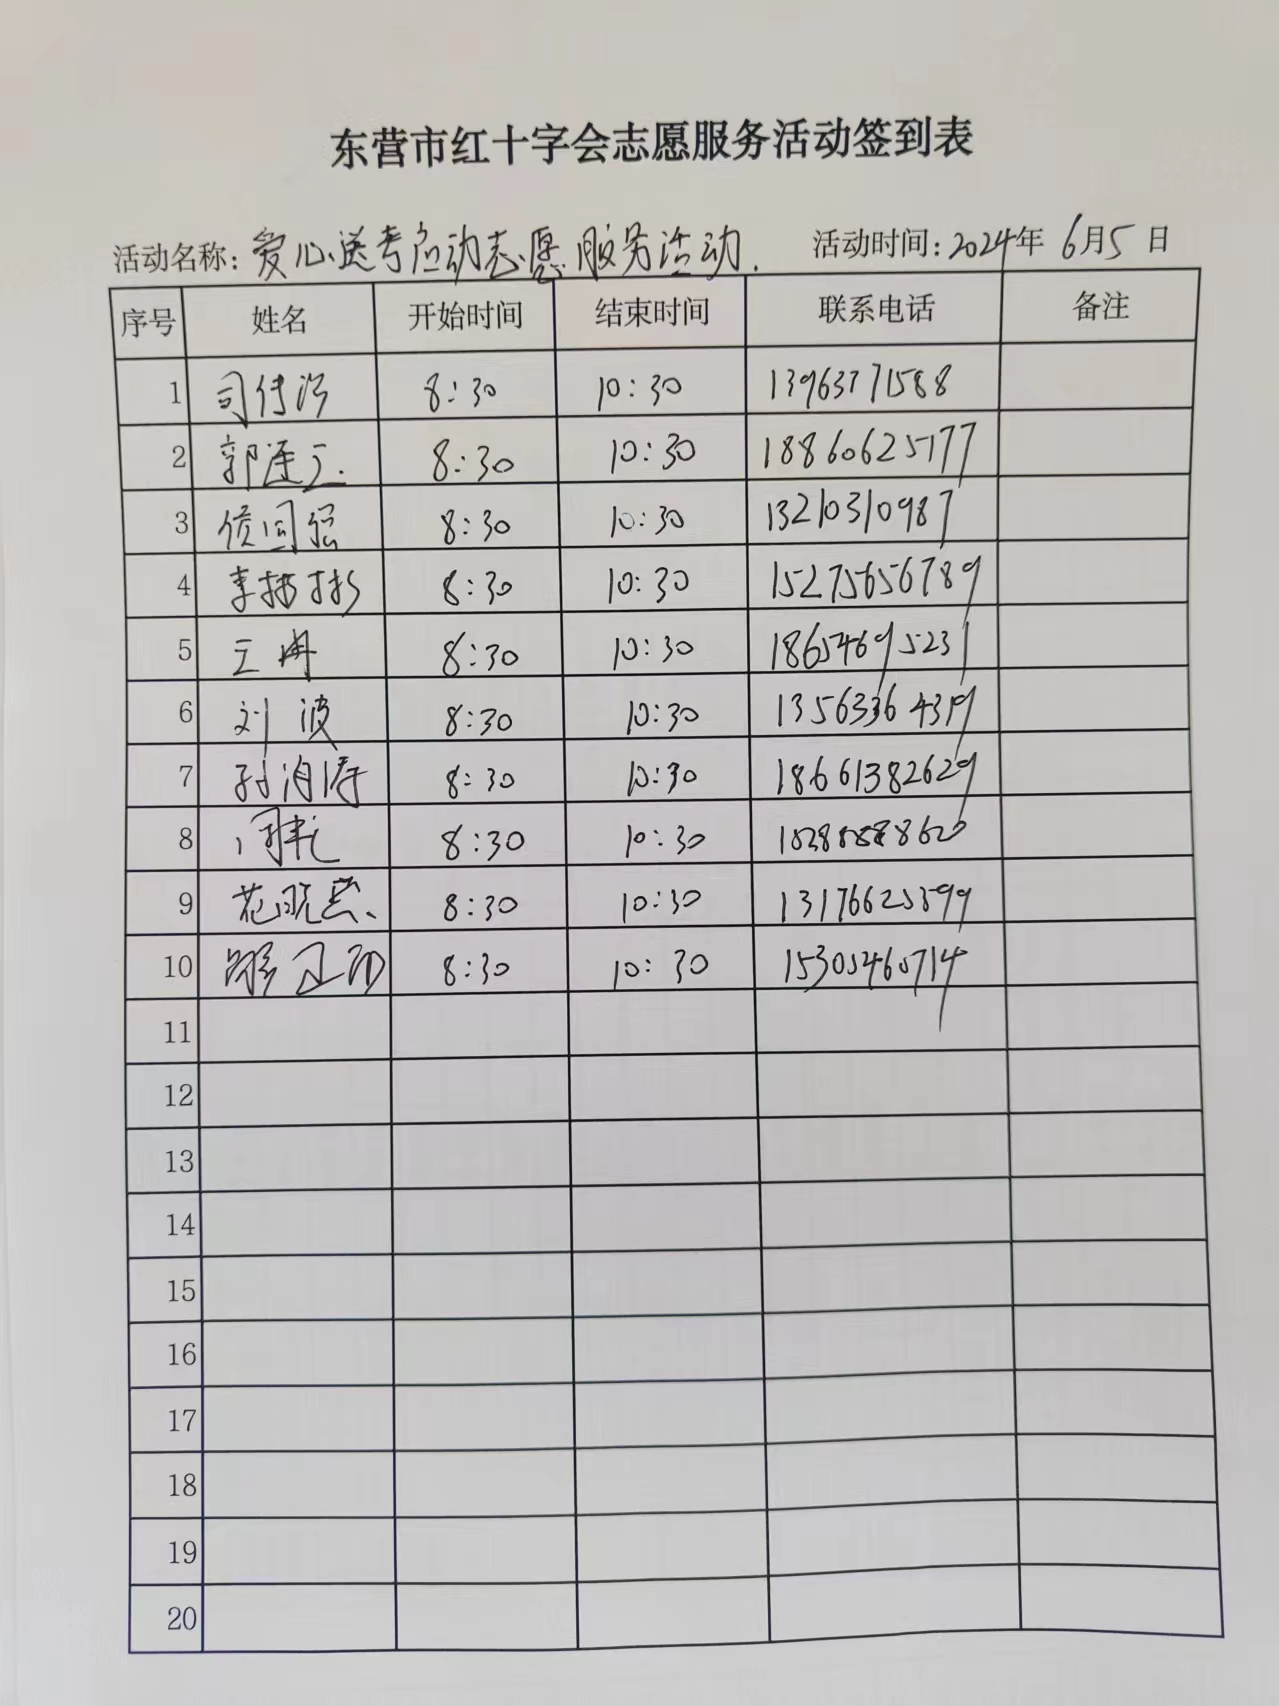 东营市红十字会志愿服务活动签到表
活动名称：爱心送考启动志愿服务活动. 活动时间：2024年 6月5日
序号 姓名 开始时间 结束时间 联系电话 备注
1 8:30 10:30 13963771588
2 郭连三 8:30 10:30 18860625177
3 侯国强 8:30 10:30 13210310987
4 8:30 10:30 15275656789
5 王冉 8:30 10:30 18654695231
6 刘波 8:30 10:30 13563364319
7 孙洎涛 8:30 10:30 18661382629
8 8:30 10:30
9 花晓 8:30 10:30 13176625899
10 8:30 10:30 15305460714
11
12
13
14
15
16
17
18
19
20